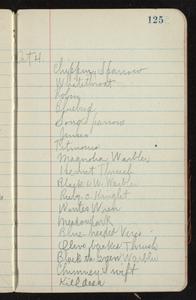 125
Oct 4.
Chipping Sparrow
Whitethroat
Robin
Bluebird
Song sparrow
Juncos
Titmouse
Magnolia Warbler
Hermit Thrush
Black & W. Warbler
Ruby c. Kinglet
Winter Wren
Meadowlark
Blue-headed Vireo
Olive backed Thrush
Black thr green Warbler
Chimney Swift
Killdeer